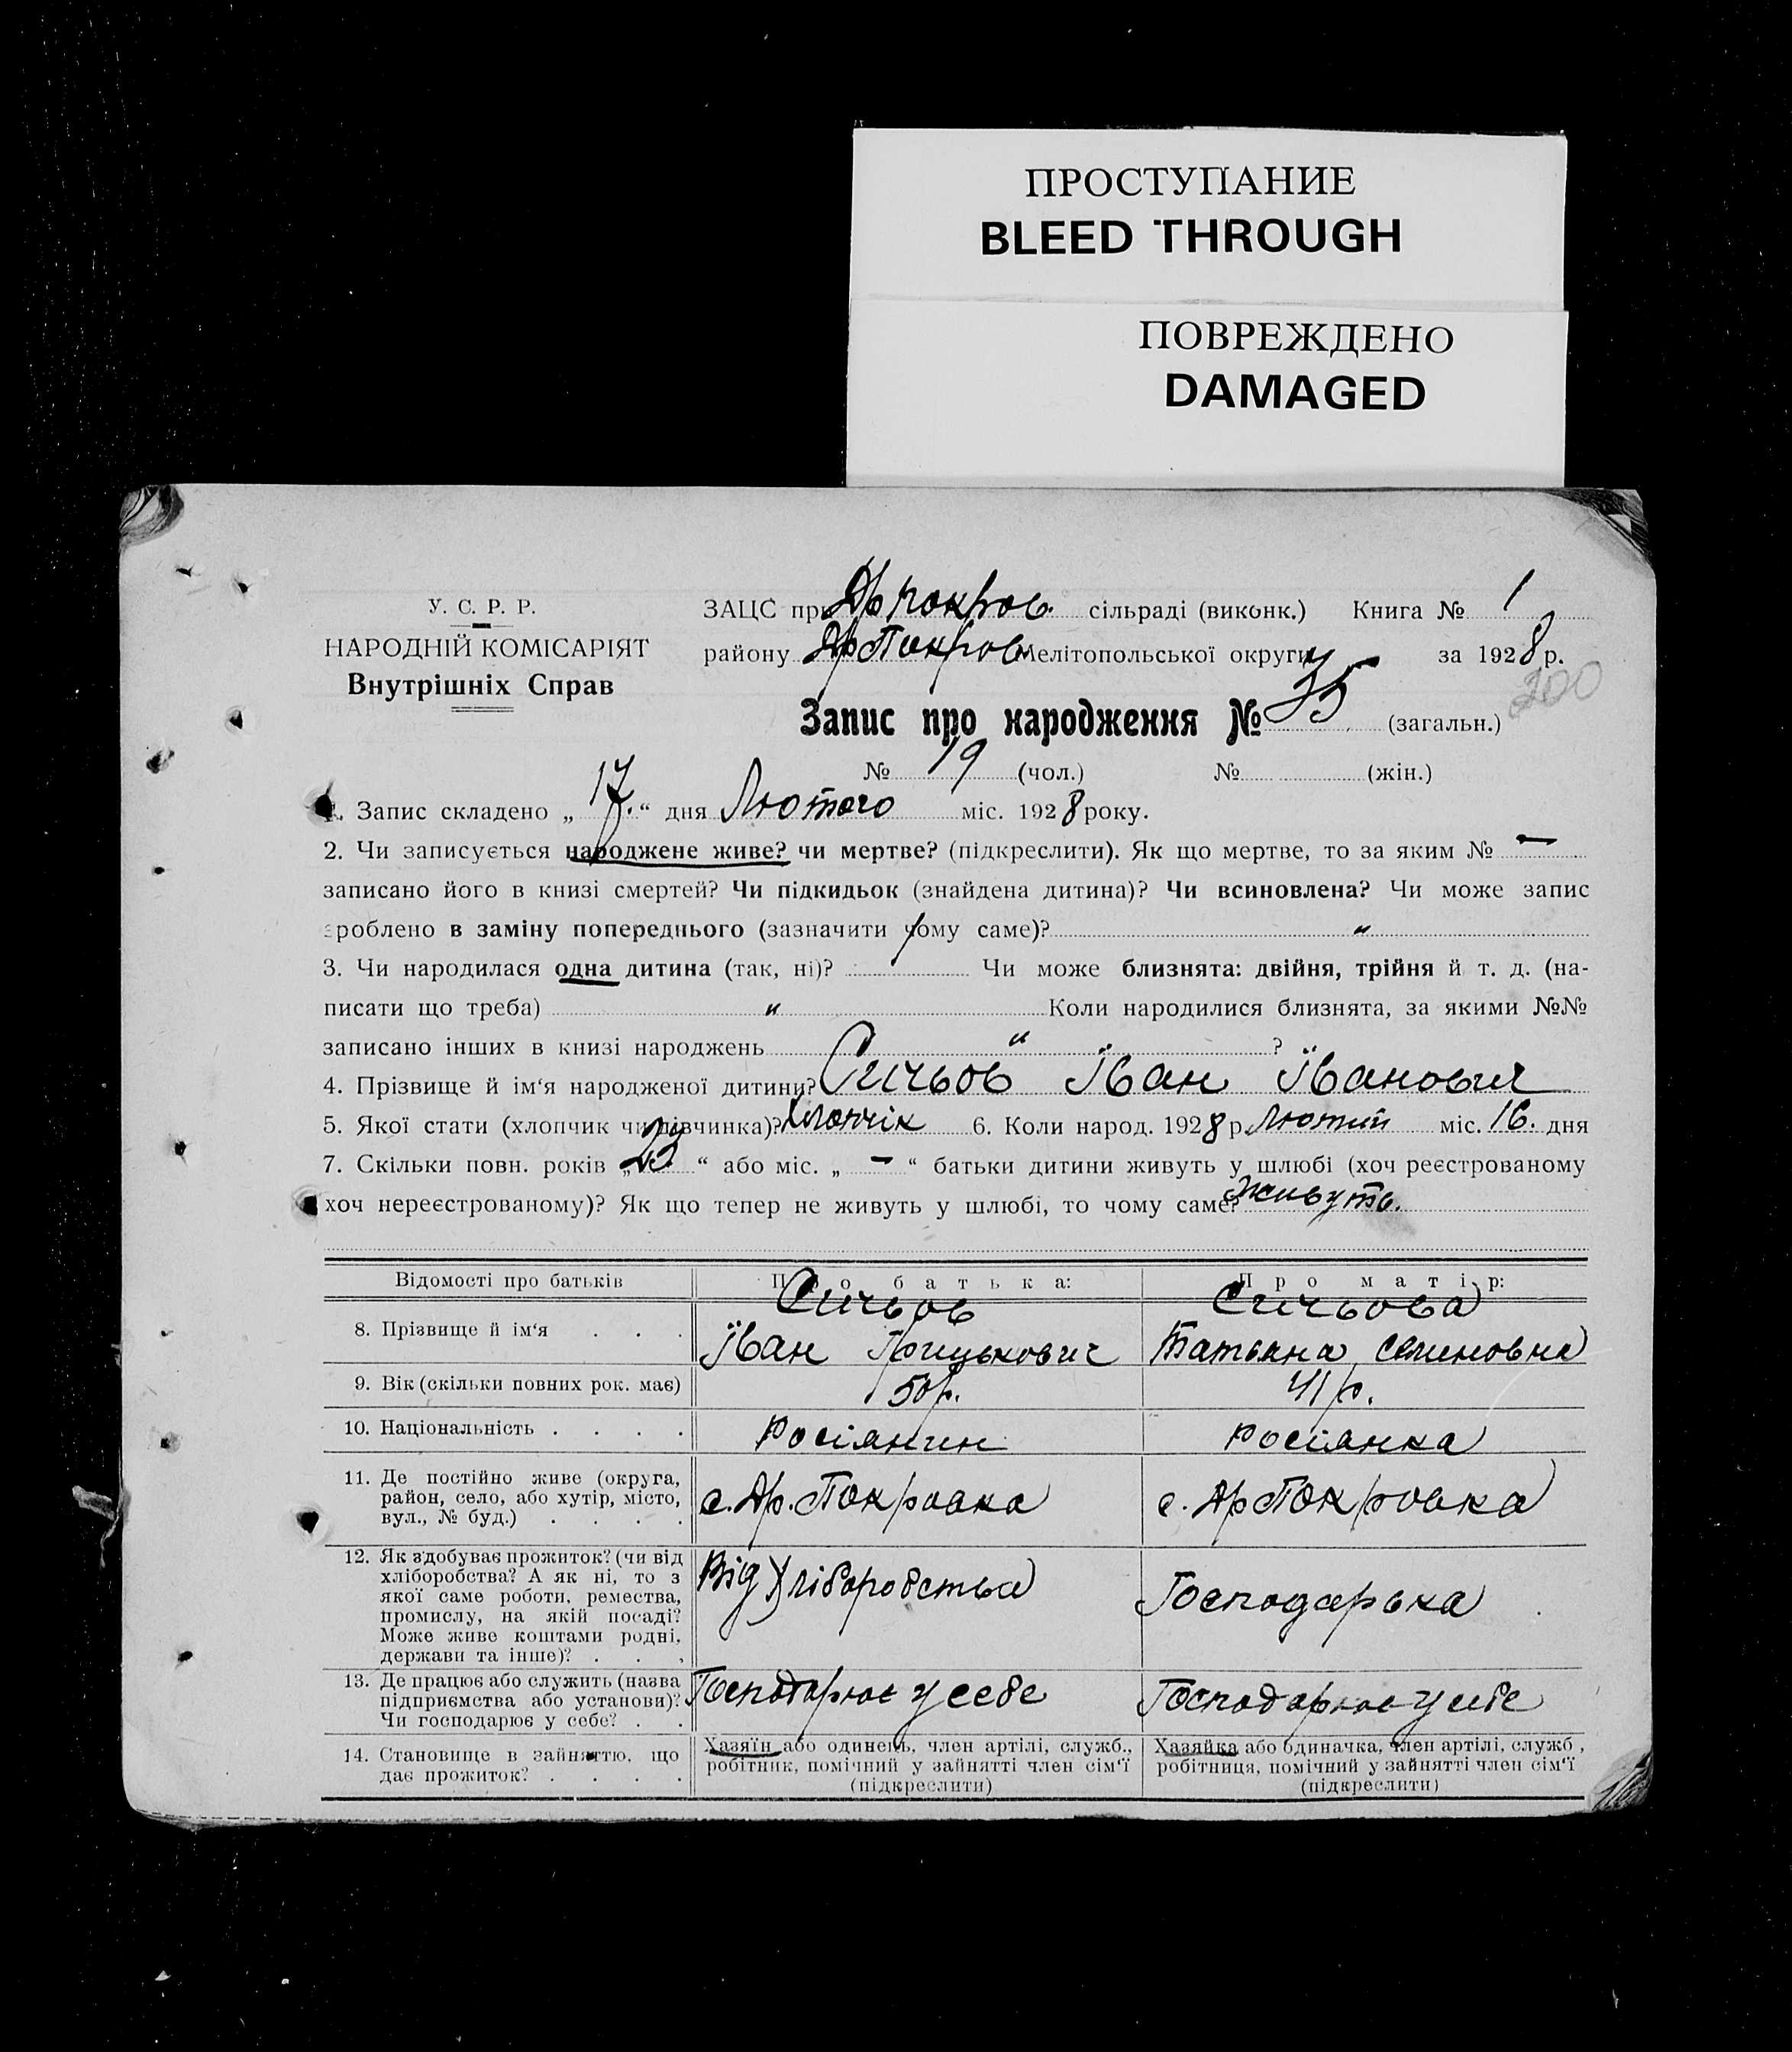 ПРОСТУПАНИЕ
BLEED THROUGH
ПОВРЕЖДЕНО
DAMAGED
У. С. Р. Р.
НАРОДНІЙ КОМІСАРІЯТ
Внутрішніх Справ
ЗАЦС при Др Покров. сільраді (виконк.) Книга № 1
району Др Покров Мелітопольської округи за 1928 р.
200
Запис про народження № 35 (загальн.)
№ 19 (чол.) № (жін.)
1. Запис складено „ 17 “ дня Лютого міс. 1928 року.
2. Чи записується народжене живе? чи мертве? (підкреслити). Як що мертве, то за яким № —
записано його в книзі смертей? Чи підкидьок (знайдена дитина)? Чи всиновлена? Чи може запис
зроблено в заміну попереднього (зазначити чому саме)? "
3. Чи народилася одна дитина (так, ні)? Чи може близнята: двійня, трійня й т. д. (на-
писати що треба) " Коли народилися близнята, за якими №№
записано інших в книзі народжень " ?
4. Прізвище й ім‘я народженої дитини? Сичьов Їван Їванович
5. Якої стати (хлопчик чи дівчинка)? Хлопчік 6. Коли народ. 1928 р. Лютий міс. 16. дня
7. Скільки повн. років „ 23 “ або міс. „ — “ батьки дитини живуть у шлюбі (хоч реєстрованому
хоч нереєстрованому)? Як що тепер не живуть у шлюбі, то чому саме? Живуть.
Відомості про батьків Про батька: Про матір:
Сичьов Сичьова
8. Прізвище й ім‘я . . . Їван Грицькович Татьяна Семиновна
9. Вік (скільки повних рок. має) 50 р. 41 р.
10. Національність . . . . Росіянин Росіянка
11. Де постійно живе (округа,
район, село, або хутір, місто, с. Др. Покровка с. Др Покровка
вул., № буд.) . . . .
12. Як здобуває прожиток? (чи від
хліборобства? А як ні, то з Від Хліборобства
якої саме роботи, ремества, Господарька
промислу, на якій посаді?
Може живе коштами родні,
держави та інше)? . . .
13. Де працює або служить (назва Господарює у себе Господарює у себе
підприємства або установи)?
Чи господарює у себе? . .
14. Становище в зайняттю, що Хазяїн або одинець, член артілі, служб., Хазяйка або одиначка, член артілі, служб ,
дає прожиток? . . . . робітник, помічний у зайнятті член сім‘ї робітниця, помічний у зайнятті член сім‘ї
(підкреслити) (підкреслити)